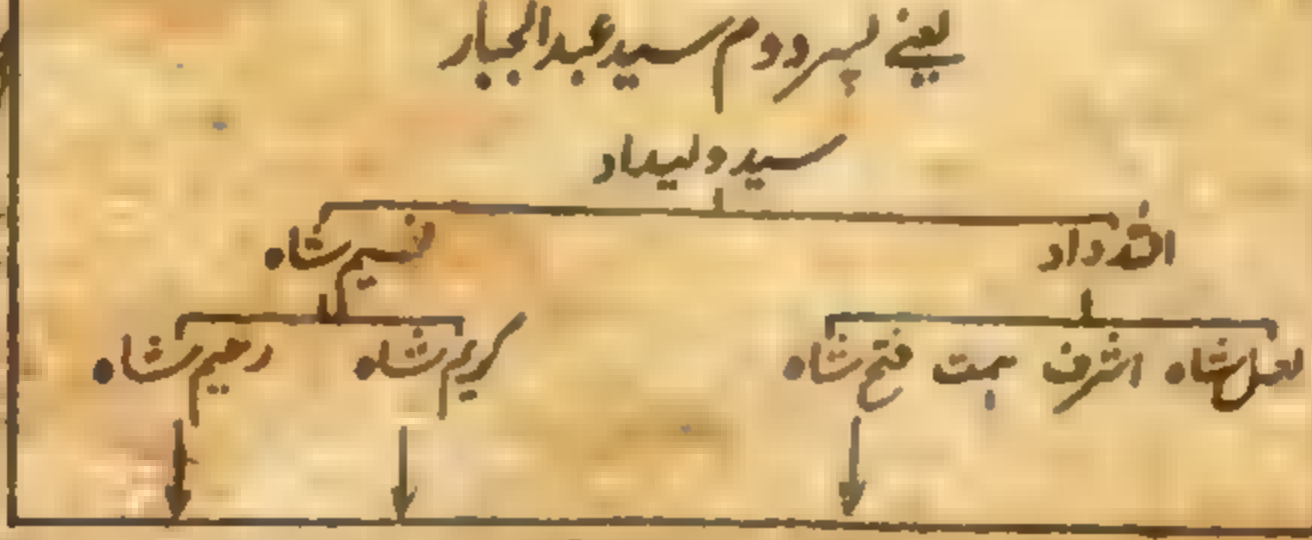 یعنے پسر دوم سید عبدالجبار
سید ولیداد
اللہ داد نسیم شاہ
لعل شاہ اشرف ہمت فتح شاہ کریم شاہ رحیم شاہ